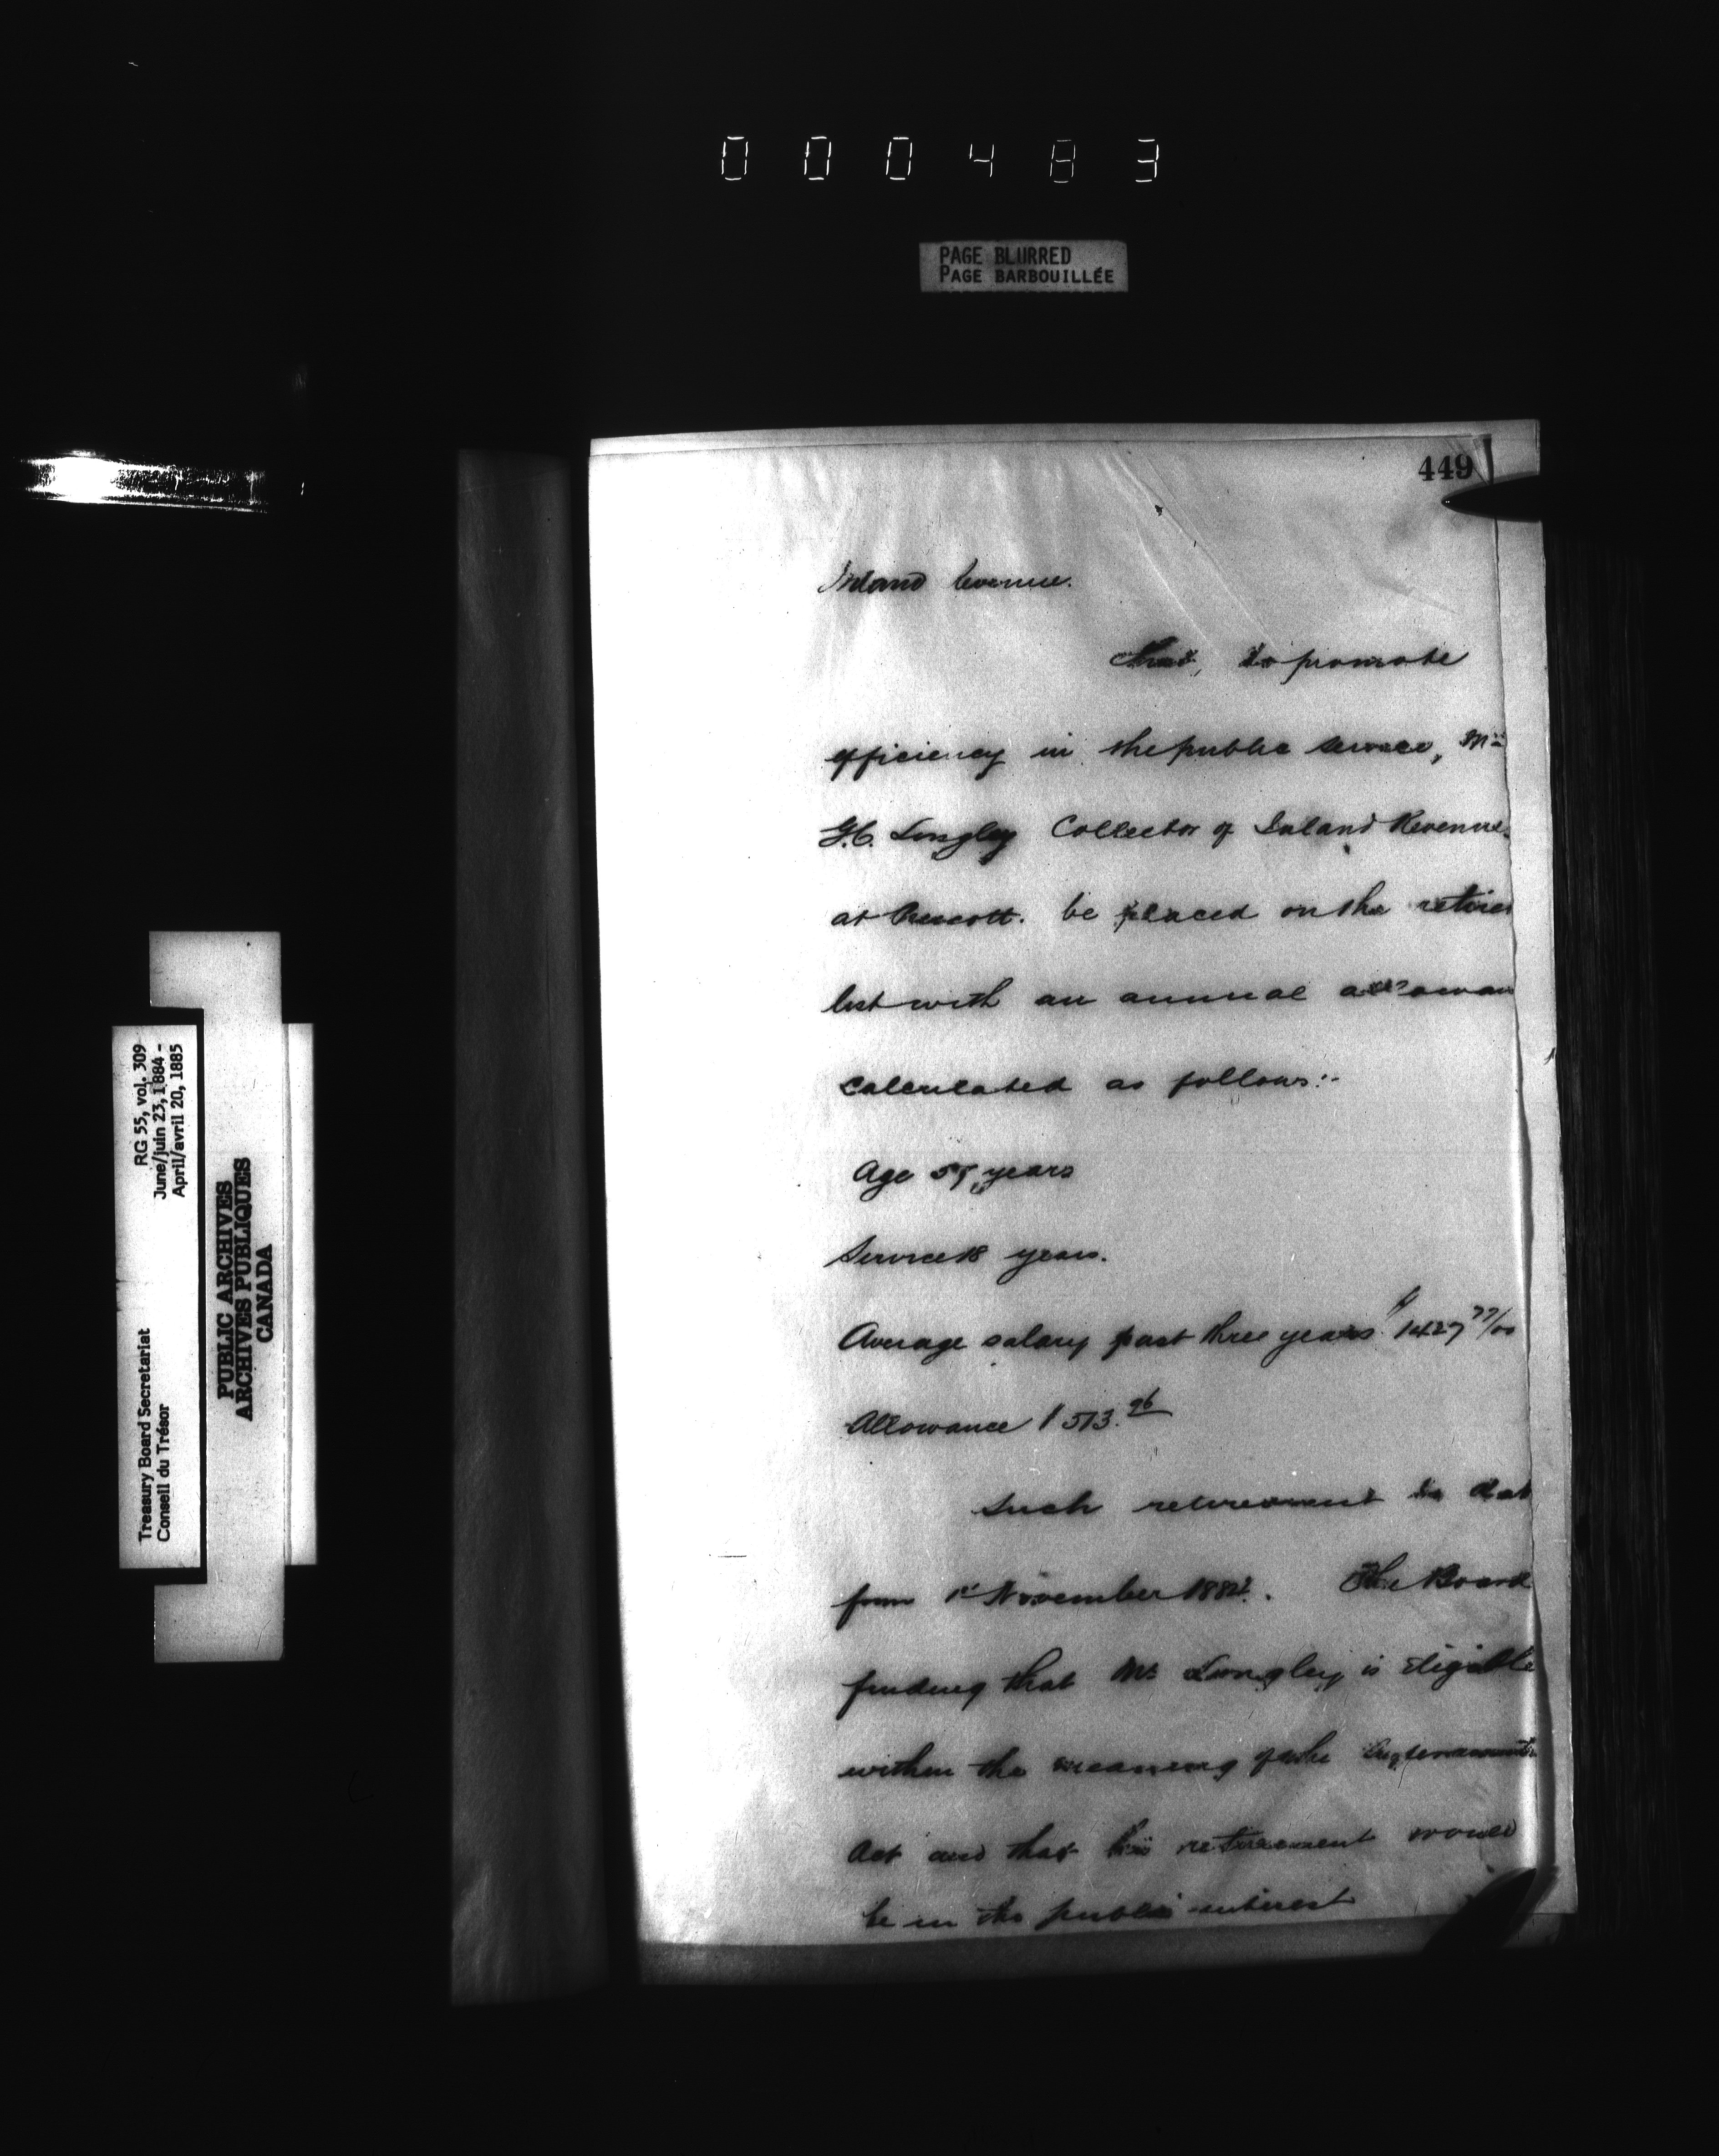 000483
PAGE BLURRED
PAGE BARBOUILLÉE
449
Inland Revenue.
that, to promote
efficiency in the public service, Mr
G.C. Longley Collector of Inland Revenue
at Prescott. be placed on the retired
list with an annual allowan
calculated as follows:-
Age 57 years
Service 18 years.
Average salary past three years $1427 77/00
Allowance $513.96
Such retirement to dat
from 1st November 1884. The Board
finding that Mr Longley is eligible
within the meaning of the Superannuati
Act and that his retirement would
be in the public interest
RG 55, vol. 309
June/juin 23, 1884 -
April/avril 20, 1885
Treasury Board Secretariat
Conseil du Trésor
PUBLIC ARCHIVES
ARCHIVES PUBLIQUES
CANADA